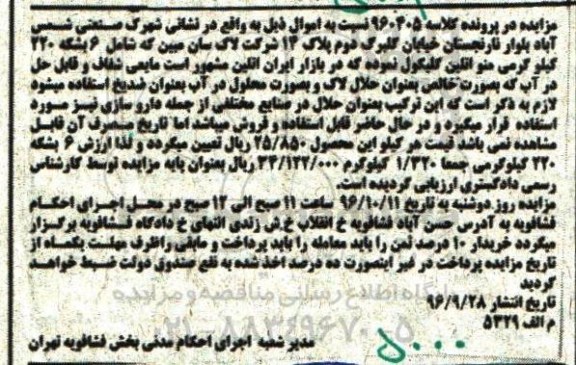 مزایده در پرونده کلاسه ۹۶۰۴۰۵ نسبت به اموال ذیل به واقع در نشانی شهرک صنعتی شمس
آباد بلوار نارنجستان خیابان گلبرگ دوم پلاک ۱۳ شرکت لاک سان مبین که شامل ۶ بشکه ۲۲۰
کیلو گرمی منو اتلین گلیکول نموده که در بازار ایران اتلین مشهور است مایعی شفاف و قابل حل
در آب که بصورت خالص بعنوان حلال لاک و بصورت محلول در آب بعنوان ضدیخ استفاده میشود
لازم به ذکر است که این ترکیب بعنوان حلال در صنایع مختلفی از جمله دارو سازی نیز مورد
استفاده قرار میگیرد و در حال حاضر قابل استفاده و فروش میباشد اما تاریخ مصرف آن قابل
مشاهده نمی باشد قیمت هر کیلو این محصول ۲۵/۸۵۰ ریال تعیین میگردد و لذا ارزش ۶ بشکه
۲۲۰ کیلوگرمی جمعا ۱/۳۲۰ کیلوگرم ۳۴/۱۲۲/۰۰۰ ریال بعنوان پایه مزایده توسط کارشناس
رسمی دادگستری ارزیابی گردیده است.
مزایده روز دوشنبه به تاریخ ۹۶/۱۰/۱۱ ساعت ۱۱ صبح الی ۱۲ صبح در محل اجرای احکام
فشافویه به آدرس حسن آباد فشافویه خ انقلاب خ.ش زندی انتهای خ دادگاه فشافویه برگزار
میگردد خریدار ۱۰ درصد ثمن را باید معامله را باید پرداخت و مابقی راظرف مهلت یکماه از
تاریخ مزایده پرداخت در غیر اینصورت ده درصد اخذ شده به نفع صندوق دولت ضبط خواهد
گردید
پایگاه اطلاع رسانی مناقصه و مزایده
تاریخ انتشار ۹۶/۹/۲۸
م الف ۵۳۲۹
۰۲۱-۸۸۳۴۹۶۷۰
۵۰۰۰
مدیر شعبه اجرای احکام مدنی بخش فشافویه تهران